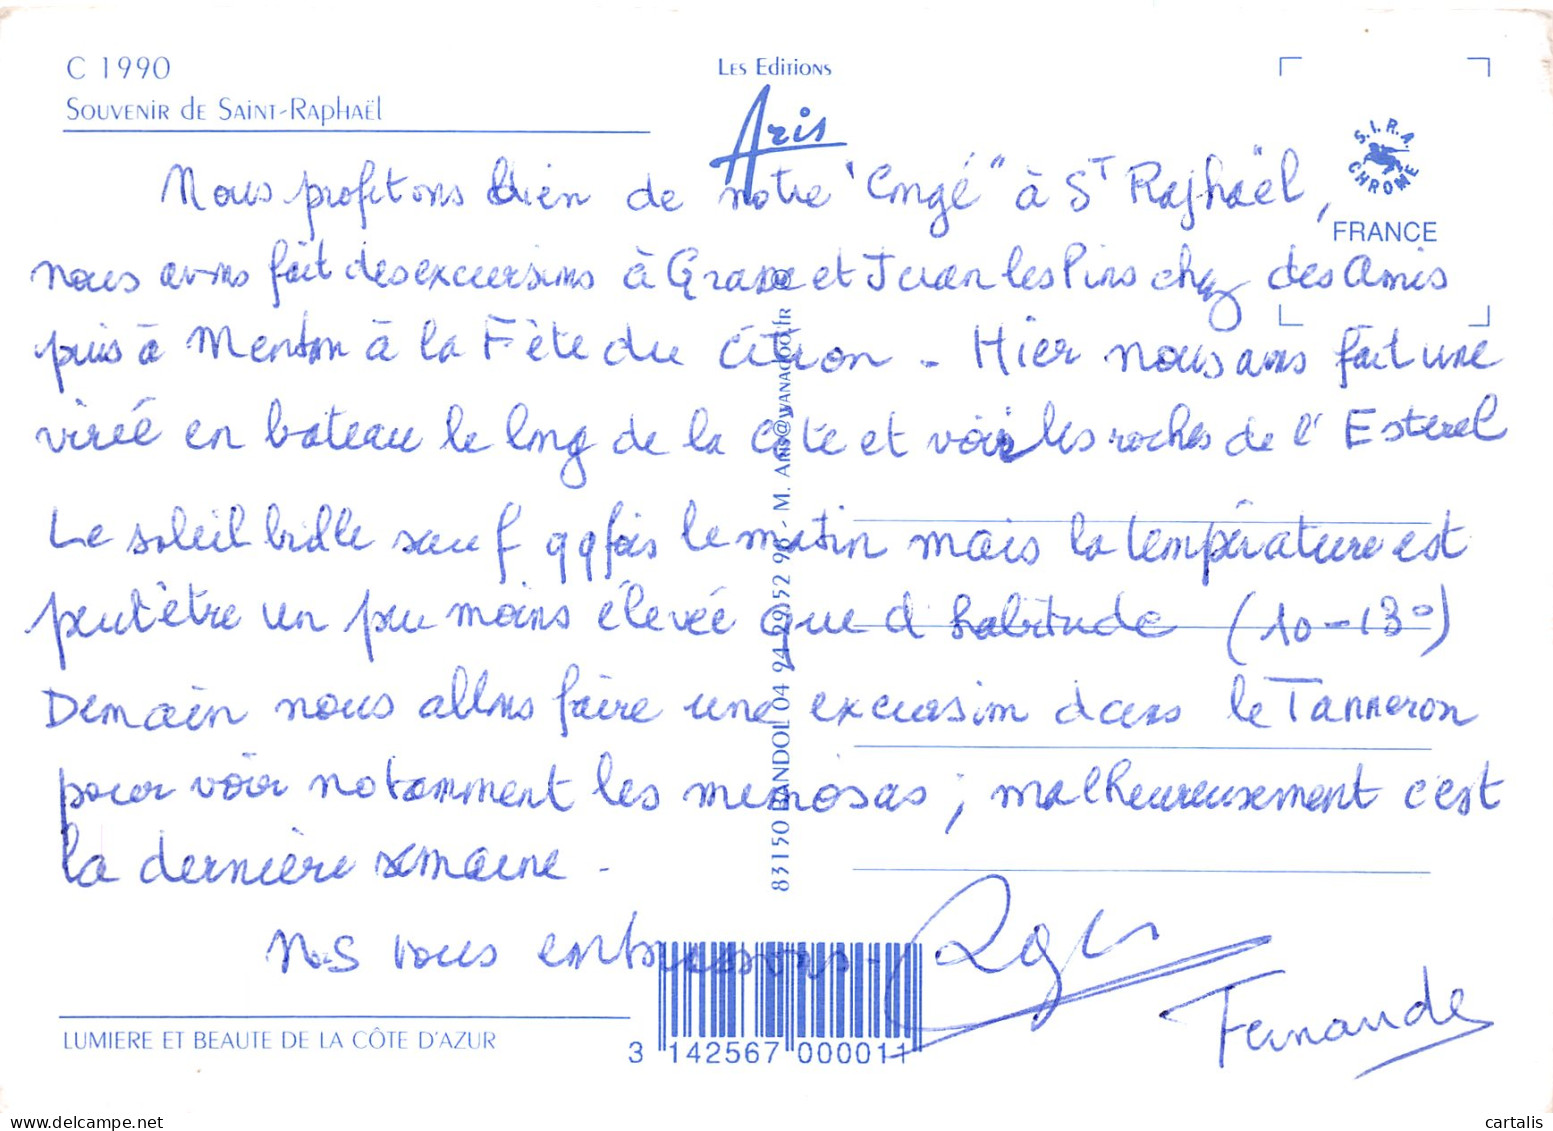 C 1990
Souvenir de Saint-Raphaël
Les Editions
Aris
S.I.R.A. CHROME
FRANCE
Nous profitons bien de notre "Congé" à St Raphaël,
nous avons fait des excursions à Grasse et Juan les Pins chez des Amis
puis à Menton à la Fête du Citron - Hier nous avons fait une
virée en bateau le long de la côte et voir les roches de l'Esterel
Le soleil brille sauf qqfois le matin mais la température est
peut être un peu moins élevée que d'habitude (10-13°)
Demain nous allons faire une excursion dans le Tanneron
pour voir notamment les mimosas ; malheureusement c'est
la dernière semaine -
Nous vous embrassons -
Fernande
83150 BANDOL 04 94 29 52 9 - M. Aris@wanadoo.fr
LUMIERE ET BEAUTE DE LA CÔTE D'AZUR
3 142567 000011
cartalis
www.delcampe.net